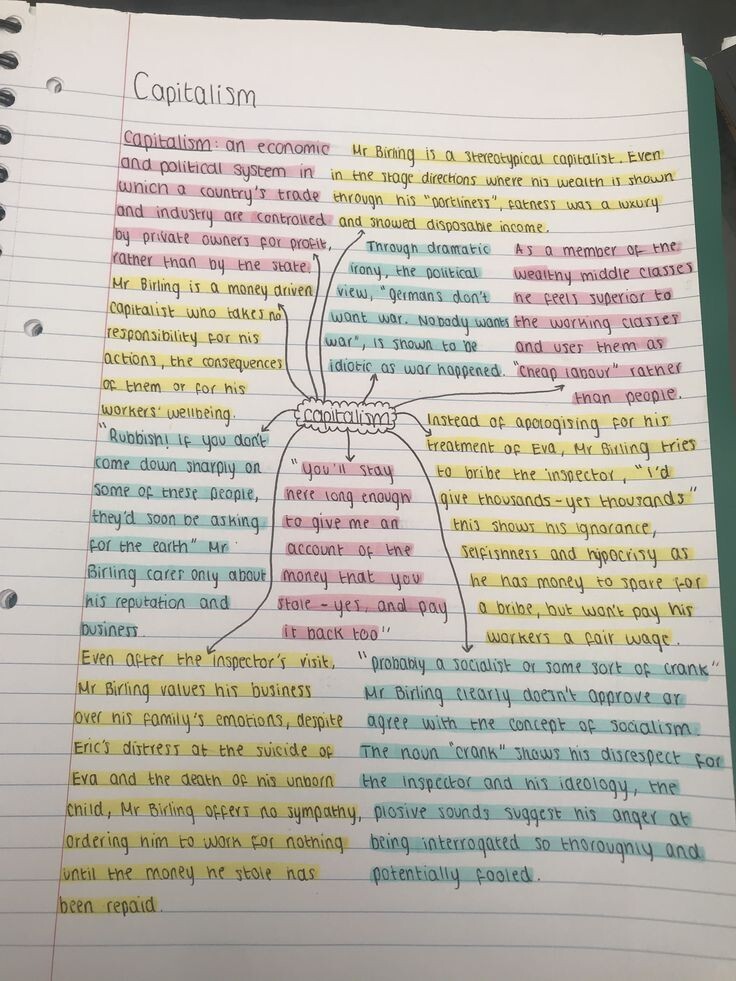 Capitalism
Capitalism: an economic
and political system in
which a country's trade
and industry are controlled
by private owners for profit,
rather than by the state.
Mr Birling is a stereotypical capitalist. Even
in the stage directions where his wealth is shown
through his "portliness", fatness was a luxury
and showed disposable income.
Mr Birling is a money driven
capitalist who takes no
responsibility for his
actions, the consequences
of them or for his
workers' wellbeing.
Through dramatic
irony, the political
view, "germans don't
want war. Nobody wants
war", is shown to be
idiotic as war happened.
As a member of the
wealthy middle classes
he feels superior to
the working classes
and uses them as
"cheap labour" rather
than people.
capitalism
"Rubbish! If you don't
come down sharply on
some of these people,
they'd soon be asking
for the earth" Mr
Birling cares only about
his reputation and
business.
"you'll stay
here long enough
to give me an
account of the
money that you
stole - yes, and pay
it back too"
Instead of apologising for his
treatment of Eva, Mr Birling tries
to bribe the inspector, "I'd
give thousands - yes thousands"
this shows his ignorance,
selfishness and hypocrisy as
he has money to spare for
a bribe, but won't pay his
workers a fair wage.
Even after the inspector's visit,
Mr Birling values his business
over his family's emotions, despite
Eric's distress at the suicide of
Eva and the death of his unborn
child, Mr Birling offers no sympathy,
ordering him to work for nothing
until the money he stole has
been repaid.
"probably a socialist or some sort of crank"
Mr Birling clearly doesn't approve or
agree with the concept of socialism.
The noun "crank" shows his disrespect for
the Inspector and his ideology, the
plosive sounds suggest his anger at
being interrogated so thoroughly and
potentially fooled.